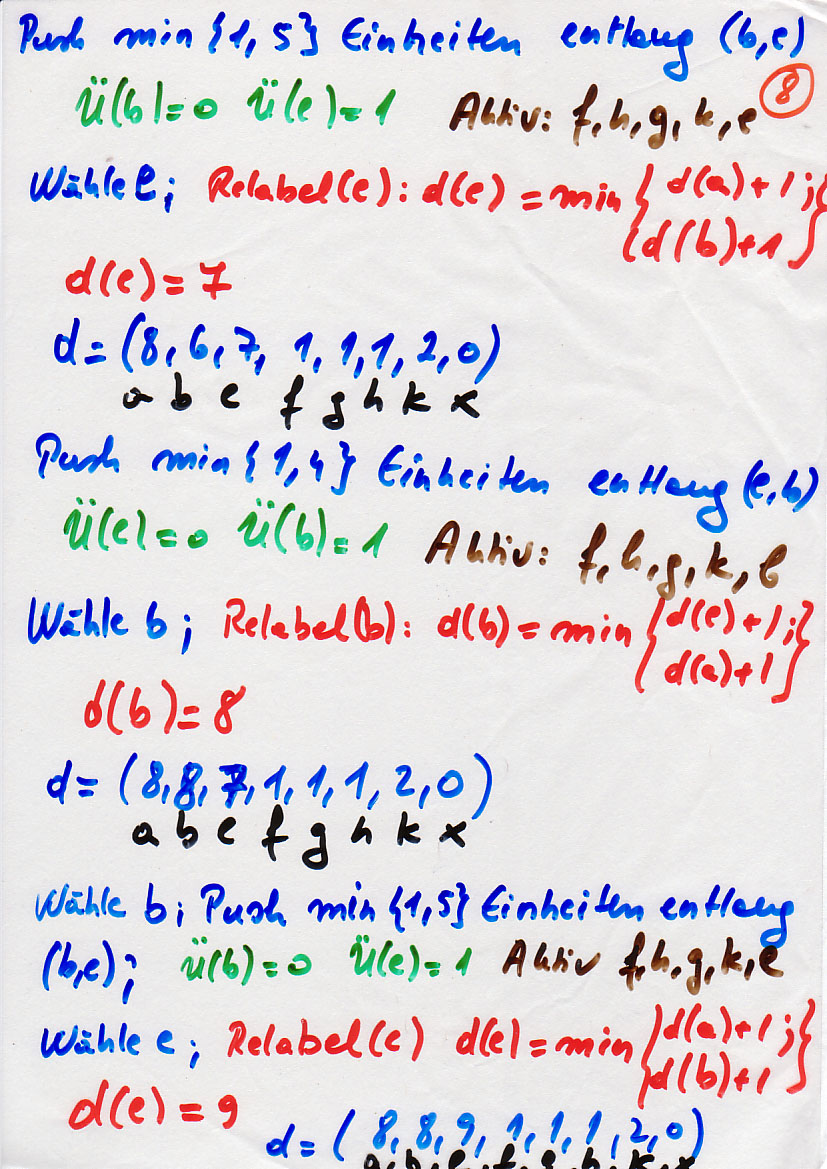 Push min {1,5} Einheiten entlang (b,e)
ü(b)=0 ü(e)=1 Aktiv: f,h,g,k,e 8
Wähle e; Relabel(e): d(e) = min { d(a)+1;
d(b)+1 }
d(e)=7
d = (8,6,7,1,1,1,2,0)
a b e f g h k x
Push min {1,4} Einheiten entlang (e,b)
ü(e)=0 ü(b)=1 Aktiv: f,h,g,k,b
Wähle b; Relabel(b): d(b) = min { d(e)+1;
d(a)+1 }
d(b)=8
d = (8,8,7,1,1,1,2,0)
a b e f g h k x
Wähle b; Push min {1,5} Einheiten entlang
(b,e); ü(b)=0 ü(e)=1 Aktiv f,h,g,k,e
Wähle e; Relabel(e) d(e) = min { d(a)+1;
d(b)+1 }
d(e) = 9
d = (8,8,9,1,1,1,2,0)
a b e f g h k x